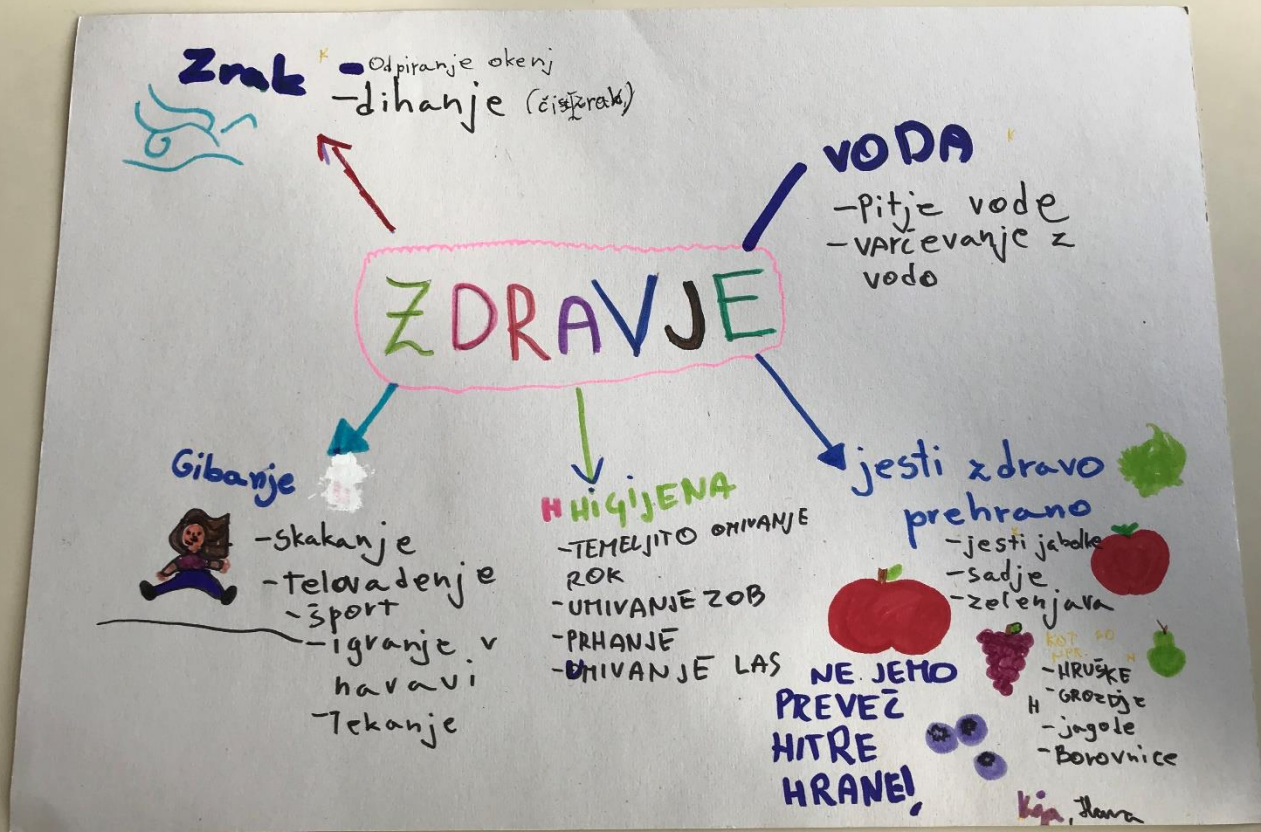 Zrak
-Odpiranje okenj
-dihanje (čisti zrak)
VODA
-Pitje vode
-VArčevanje z
vodo
ZDRAVJE
Gibanje
-skakanje
-telovadenje
-šport
-igranje v
naravi
-Tekanje
H HiGiJENA
-TEMELJITO UMIVANJE
ROK
-UMIVANJE ZOB
-PRHANJE
-UMIVANJE LAS
jesti zdravo
prehrano
-jesti jabolke
-sadje
-zelenjava
KOT SO
NPR.
-HRUŠKE
-GROZDJE
-jagode
-Borovnice
NE JEMO
PREVEČ
HITRE
HRANE!